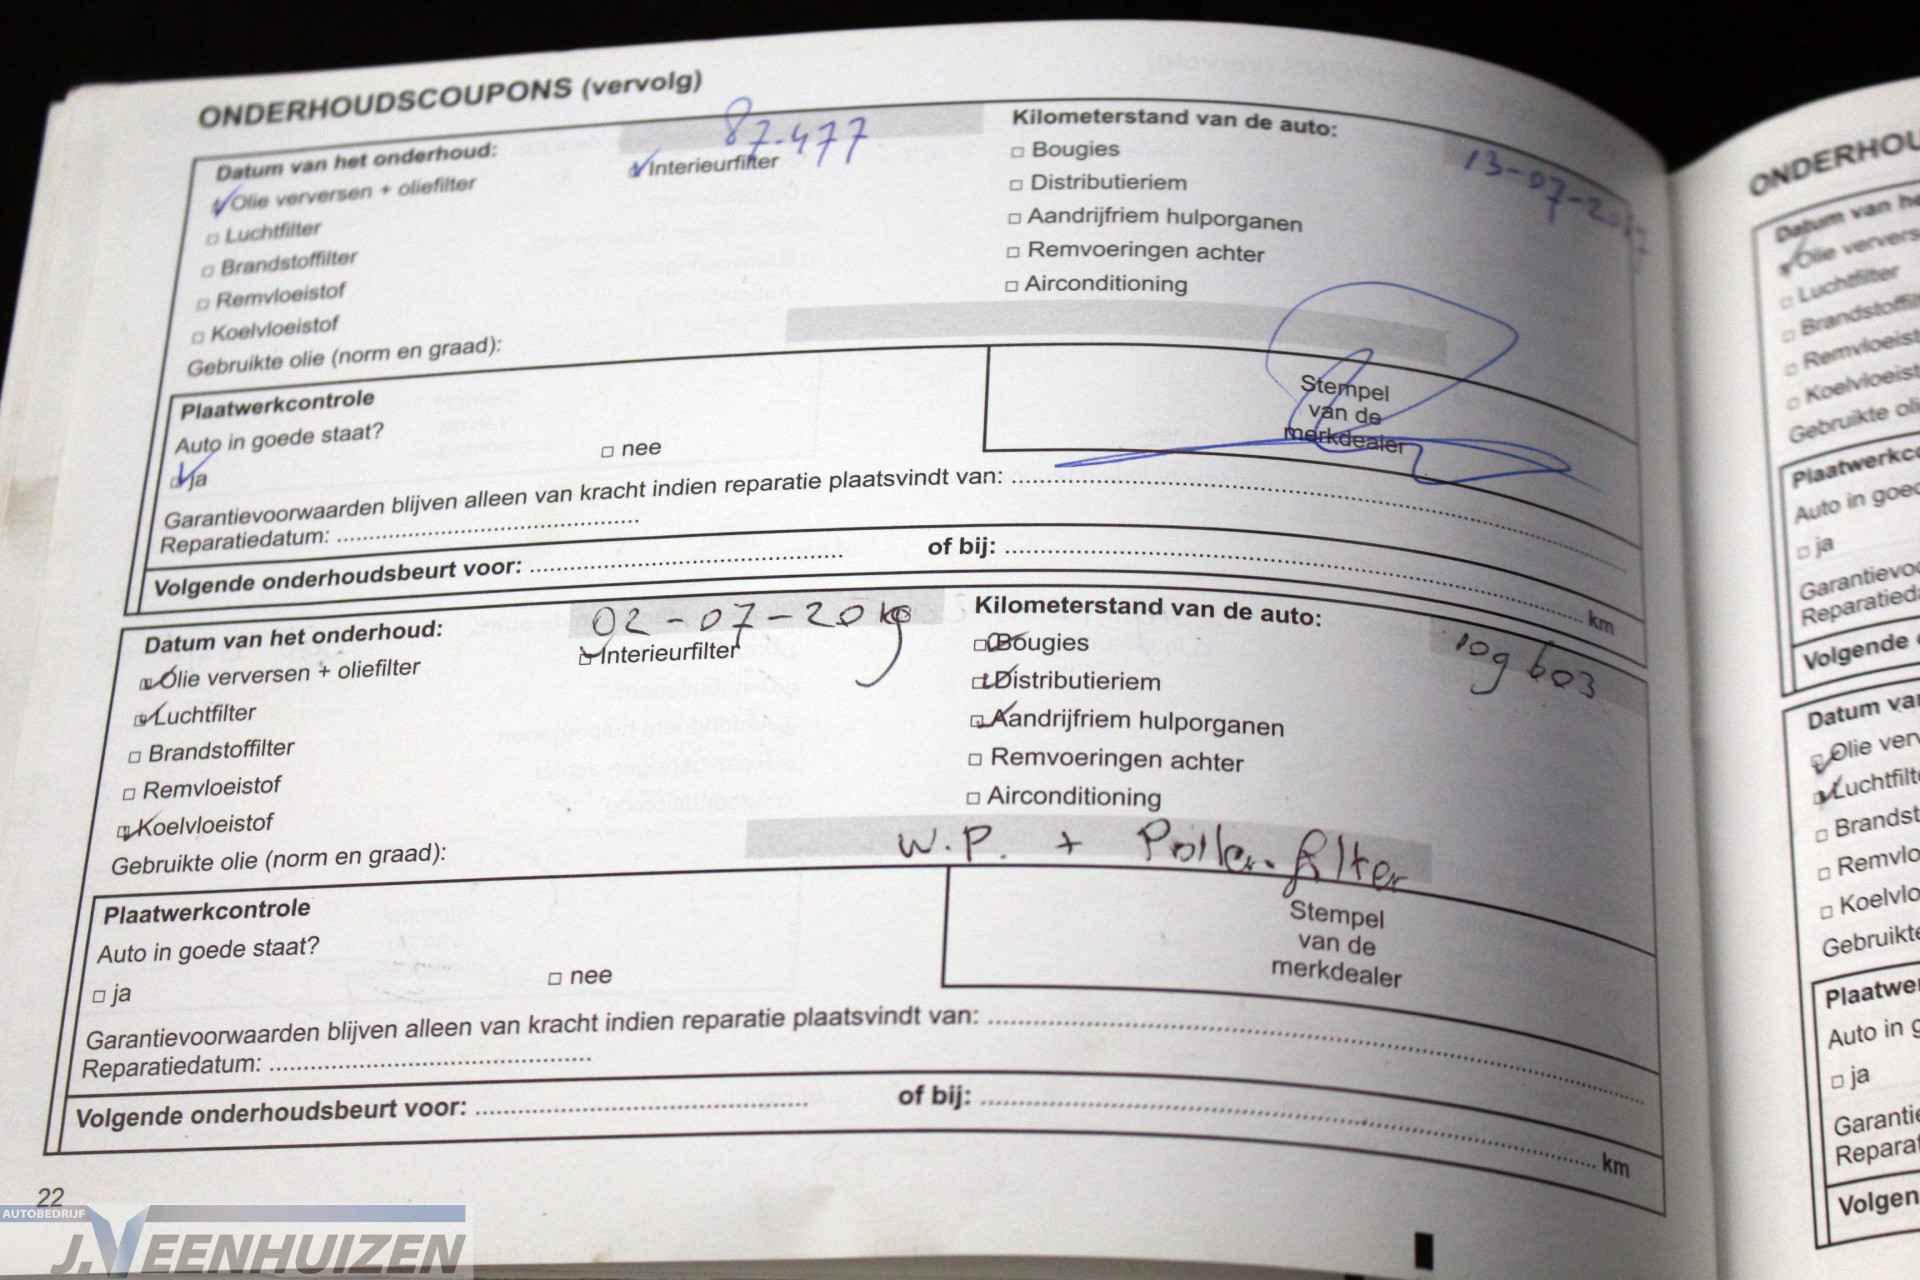 ONDERHOUDSCOUPONS (vervolg)
Datum van het onderhoud: 87.477
Kilometerstand van de auto: 13-07-20
Olie verversen + oliefilter
Interieurfilter
Bougies
Luchtfilter
Distributieriem
Brandstoffilter
Aandrijfriem hulporganen
Remvloeistof
Remvoeringen achter
Koelvloeistof
Airconditioning
Gebruikte olie (norm en graad):
Plaatwerkcontrole
Auto in goede staat?
ja
nee
Stempel
van de
merkdealer
Garantievoorwaarden blijven alleen van kracht indien reparatie plaatsvindt van:
Reparatiedatum:
Volgende onderhoudsbeurt voor: of bij: km
Datum van het onderhoud: 02-07-20
Kilometerstand van de auto: 109 603
Olie verversen + oliefilter
Interieurfilter
Bougies
Luchtfilter
Distributieriem
Brandstoffilter
Aandrijfriem hulporganen
Remvloeistof
Remvoeringen achter
Koelvloeistof
Airconditioning
Gebruikte olie (norm en graad): W.P. + Pollen filter
Plaatwerkcontrole
Auto in goede staat?
ja
nee
Stempel
van de
merkdealer
Garantievoorwaarden blijven alleen van kracht indien reparatie plaatsvindt van:
Reparatiedatum:
Volgende onderhoudsbeurt voor: of bij: km
22
AUTOBEDRIJF
J.VEENHUIZEN
ONDERHOU
Datum van he
Olie ververs
Luchtfilter
Brandstoffil
Remvloeist
Koelvloeist
Gebruikte oli
Plaatwerkco
Auto in goed
ja
Garantievoo
Reparatieda
Volgende
Datum va
Olie ver
Luchtfilt
Brandst
Remvlo
Koelvlo
Gebruikt
Plaatwe
Auto in g
ja
Garanti
Repara
Volgen